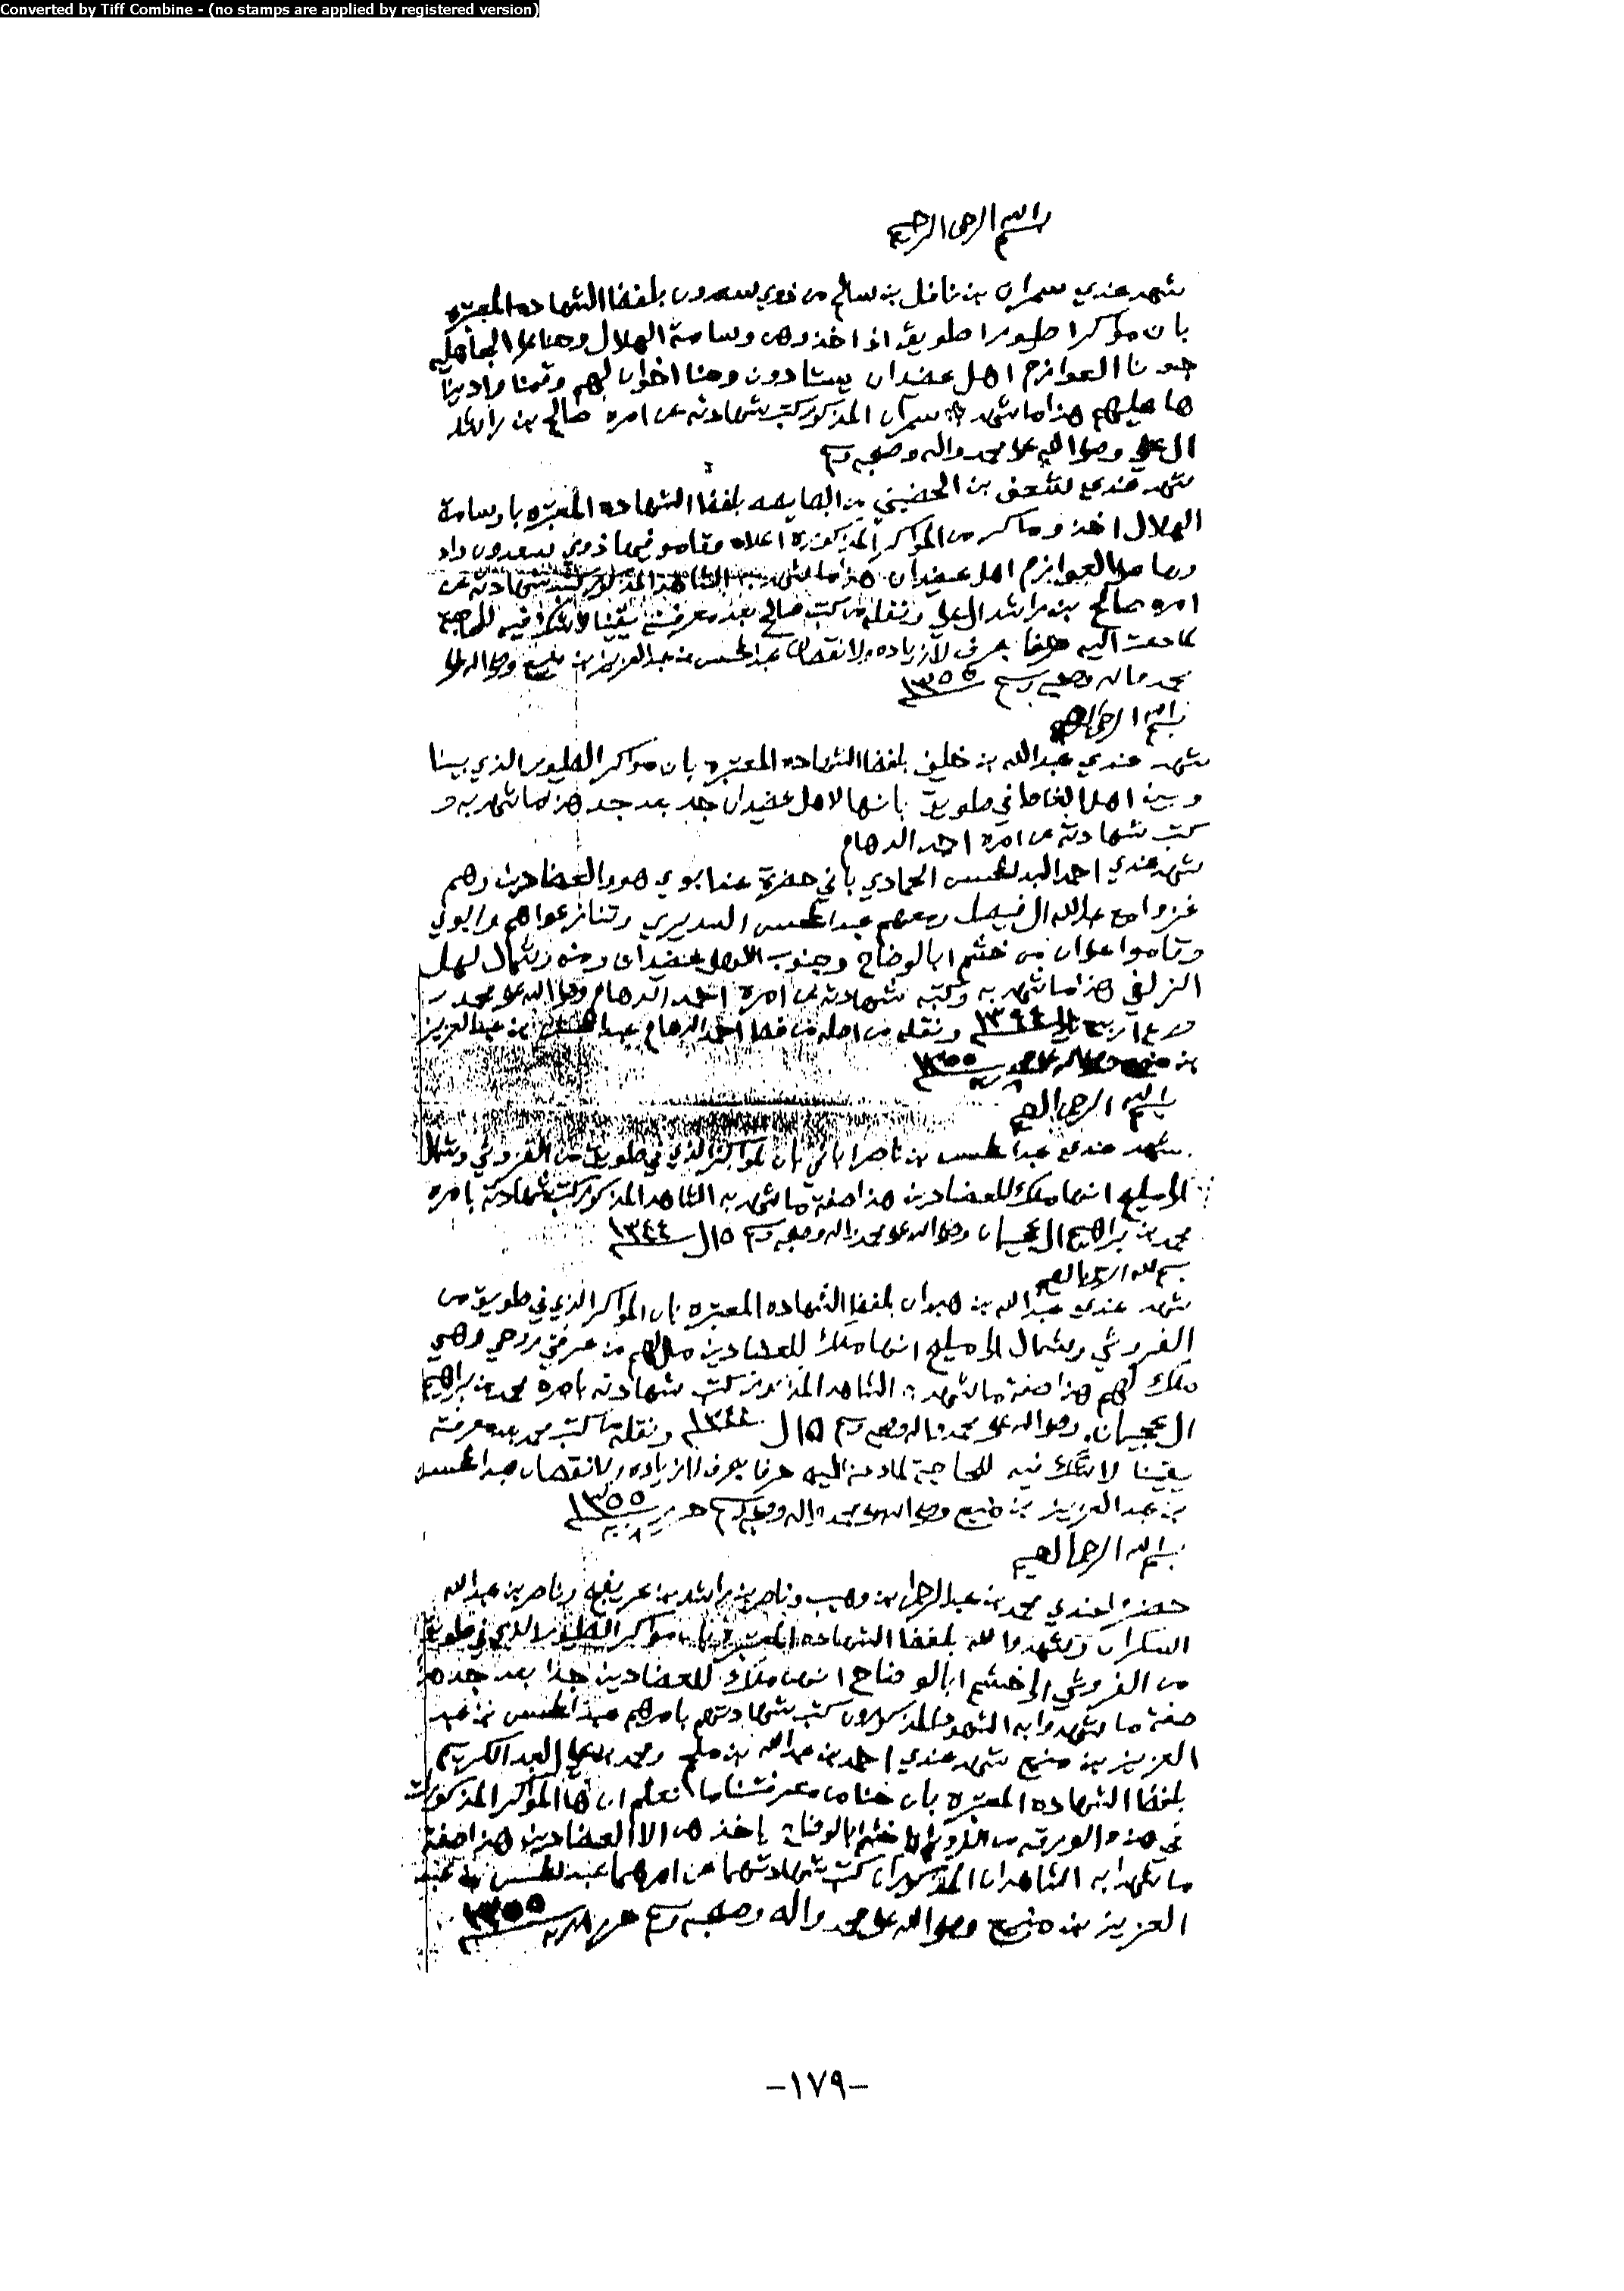 Converted by Tiff Combine - (no stamps are applied by registered version)
بسم الله الرحمن الرحيم
شهد عندي سمران بن نافل بن سالم من ذوي سعدون بلفظ الشهاده المعتبره
بان مواكر اطيور اطويق اذا اخذوهن وسامة الهلال وحنا على الجاهليه
جونا العوازم اهل عضيدان يستادون وحنا اخوان لهم وقمنا وادينا
ها عليهم هذا ما شهد به سمران المذكور كتب شهادته عن امره صالح بن راشد
ال علي وصلى الله على محمد واله وصحبه وسلم
شهد عندي بن الحضيني من بلفظ الشهاده المعتبره بان وسامة
الهلال اخذوا مواكر من المواكر المذكوره اعلاه وقاموا فيها ذوي سعدون واد
العوازم اهل عضيدان هذا ما شهد به الشاهد المذكور كتب شهادته عن
امره صالح بن راشد ال علي ونقله من كتب صالح بعد معرفته يقينا لا شك فيه للحاجة
لما دعت اليه حرفا بحرف لا زياده ولا نقصان عبدالمحسن بن عبدالعزيز بن منيع وصلى الله على
محمد واله وصحبه وسلم ١٣٥٥
بسم الله الرحمن الرحيم
شهد عندي عبدالله بن خليف بلفظ الشهاده المعتبره بان مواكر الطيور الذي بيننا
وبين اهل الغاط في طويق بانها لاهل عضيدان جد بعد جد هذا ما شهد به و
كتب شهادته عن امره احمد الدهام
شهد عندي احمد العبدالمحسن الحمادي باني حضرة عند ابوي هو والعضادين وهم
غزوا مع عبدالله ال فيصل ومعهم عبدالمحسن السديري وتنازعوا هم وابوي
وقاموا على ان من خشم ابالوضاح وجنوب لاهل عضيدان ومنه وشمال لهل
الزلفي هذا ما شهد به وكتبه شهادته عن امره احمد الدهام وصلى الله على محمد
ونقله من اصله من خط احمد الدهام عبدالمحسن بن عبدالعزيز
بن منيع وصلى الله على محمد ١٣٥٥
بسم الله الرحمن الرحيم
شهد عندي عبدالمحسن بن ناصر بان المواكر الذي في طويق من الفروثي وشمال
الى مليح انها ملك للعضادين هذا صفة ما شهد به الشاهد المذكور كتب شهادته بامره
محمد بن براهيم ال عجيان وصلى الله على محمد واله وصحبه وسلم ١٥ل ١٣٤٤
بسم الله الرحمن الرحيم
شهد عندي عبدالله بن هبدان بلفظ الشهاده المعتبره بان المواكر الذي في طويق من
الفروثي وشمال الى مليح انها ملك للعضادين مالهم من عرفني بروحي وهي
ملك لهم هذا صفة ما شهد به الشاهد المذكور كتب شهادته بامره محمد بن براهيم
ال عجيان وصلى الله على محمد واله وصحبه وسلم ١٥ل ١٣٤٤ ونقله من كتب محمد بعد معرفته
يقينا لا شك فيه للحاجة لما دعت اليه حرفا بحرف لا زياده ولا نقصان عبدالمحسن
بن عبدالعزيز بن منيع وصلى الله على محمد واله وصحبه وسلم حرر ١٣٥٥
بسم الله الرحمن الرحيم
حضروا عندي محمد بن عبدالرحمن بن وهيب وناصر بن راشد بن عريفج وناصر بن عبدالله
السكران وشهدوا لله بلفظ الشهاده المعتبره بان مواكر الطيور الذي في طويق
من الفروثي الى خشم ابالوضاح انهن ملك للعضادين جدا بعد جد هذا
صفة ما شهدوا به الشهود المذكورون كتب شهادتهم بامرهم عبدالمحسن بن عبد
العزيز بن منيع شهد عندي احمد بن عبدالله بن ملحم ومحمد العلي العبدالكريم
بلفظ الشهاده المعتبره بان حنا من معرفتنا ما نعلم ان ها المواكر المذكورت
في هذه الورقه من الفروثي الى خشم ابالوضاح ياخذهن الا العضادين هذا صفة
ما شهدا به الشاهدان المذكوران كتب شهادتهما عن امرهما عبدالمحسن بن عبد
العزيز بن منيع وصلى الله على محمد واله وصحبه وسلم حرر ١٣٥٥
-١٧٩-